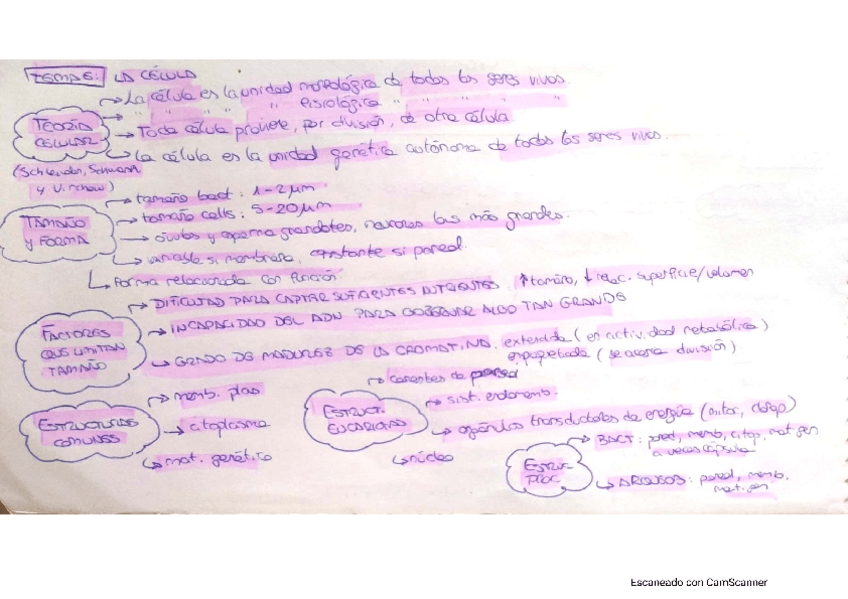 TEMA 6: LA CÉLULA
TEORÍA CELULAR
(Schleiden, Schwann y Virchow)
→ La célula es la unidad morfológica de todos los seres vivos.
→ " " " " fisiológica " " " "
→ Toda célula proviene, por división, de otra célula
→ La célula es la unidad genética autónoma de todos los seres vivos.
TAMAÑO y FORMA
→ tamaño bact: 1-2 µm
→ tamaño cells: 5-20 µm
→ óvulos y esperma grandotes, neuronas las más grandes.
→ variable si membrana, constante si pared.
→ Forma relacionada con función.
FACTORES QUE LIMITAN TAMAÑO
→ DIFICULTAD PARA CAPTAR SUFICIENTES NUTRIENTES ↑tamaño, ↓relac. superficie/volumen
→ INCAPACIDAD DEL ADN PARA GOBERNAR ALGO TAN GRANDE
→ GRADO DE MADUREZ DE LA CROMATINA. extendida (en actividad metabólica)
empaquetada (se acerca división)
ESTRUCTURAS COMUNES
→ memb. plas
→ citoplasma
→ mat. genético
ESTRUCT. EUCARIOTAS
→ carentes de pared
→ sist. endomemb.
→ orgánulos transductores de energía (mitoc, clorop)
→ núcleo
ESTRUC PROC
→ BACT: pared, memb, citop, mat gen
a veces cápsula
→ ARQUEAS: pared, memb.
mat. gen
Escaneado con CamScanner